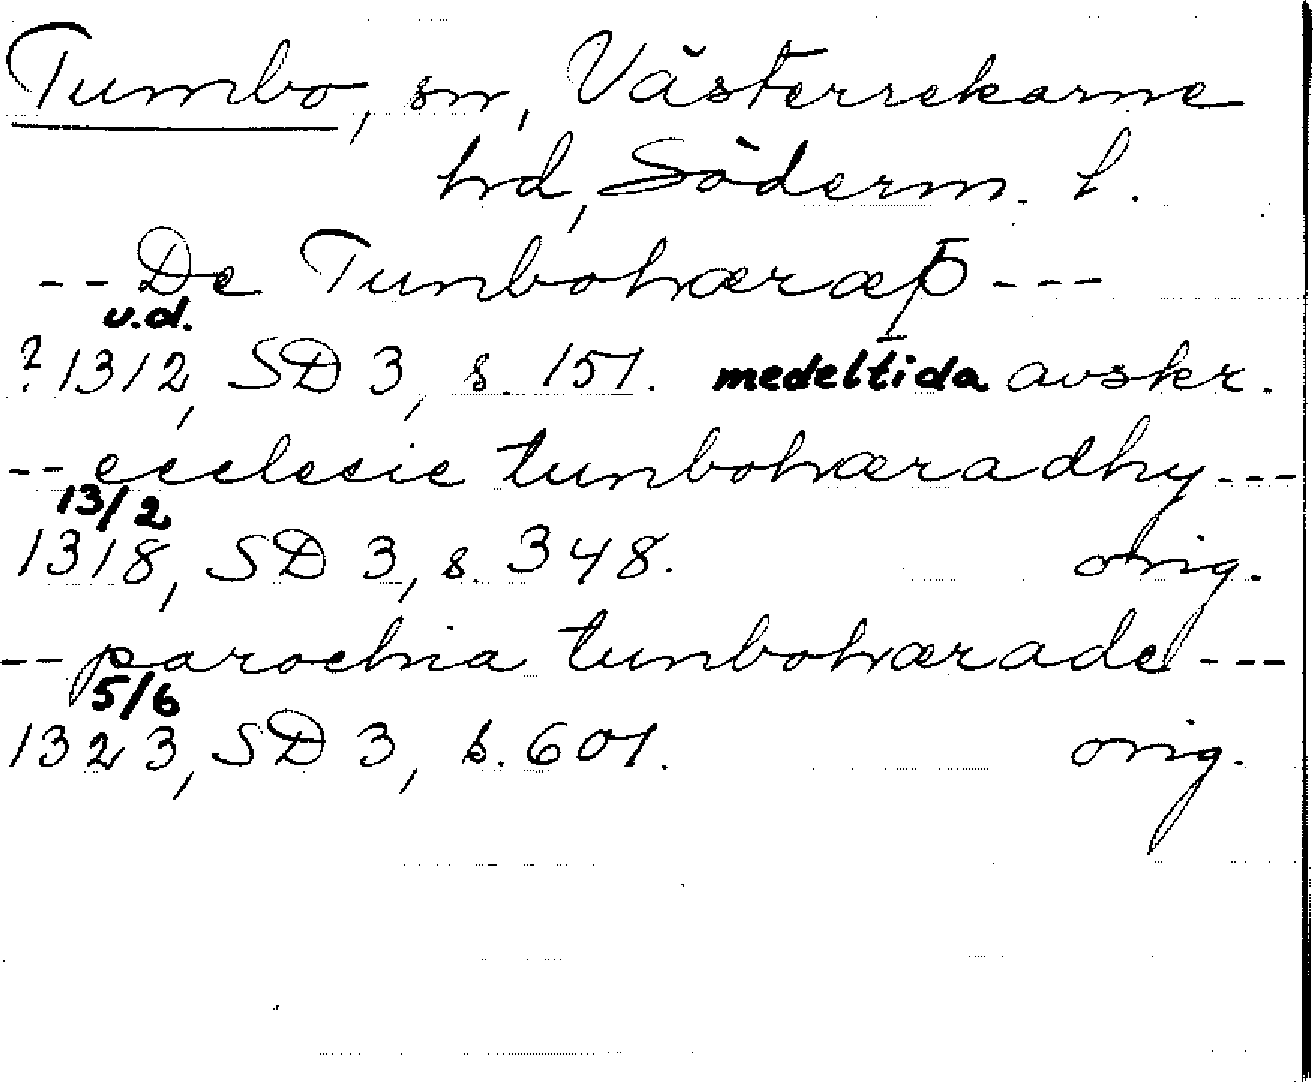 Tumbo, sn, Västerrekarne
hd, Söderm. l.
-- De Tunbohæræþ ---
u.d.
? 1312, SD 3, s. 151. medeltida avskr.
-- ecclesie tunbohæradhy ---
13/2
1318, SD 3, s. 348. orig.
-- parochia tunbohærade ---
5/6
1323, SD 3, s. 601. orig.